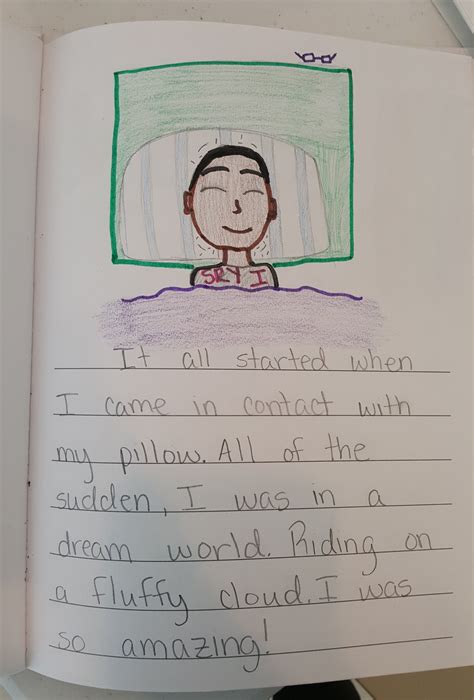 SRY I
It all started when
I came in contact with
my pillow. All of the
sudden, I was in a
dream world. Riding on
a fluffy cloud. I was
so amazing!